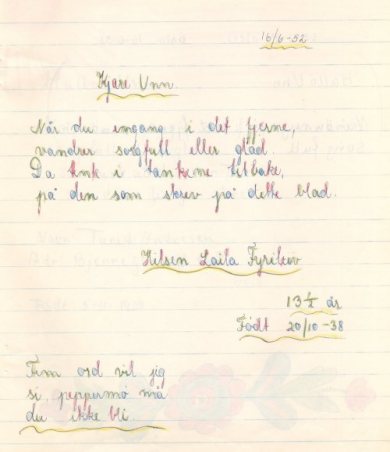 16/6-52
Kjære Unn
Når du engang i det fjerne,
vandrer sorgfull eller glad.
Da tenk i tankene tilbake,
på den som skrev på dette blad.
Hilsen Laila
13 ½ år
Født 20/10-38
Fem ord vil jeg
si, peppermø må
du ikke bli.